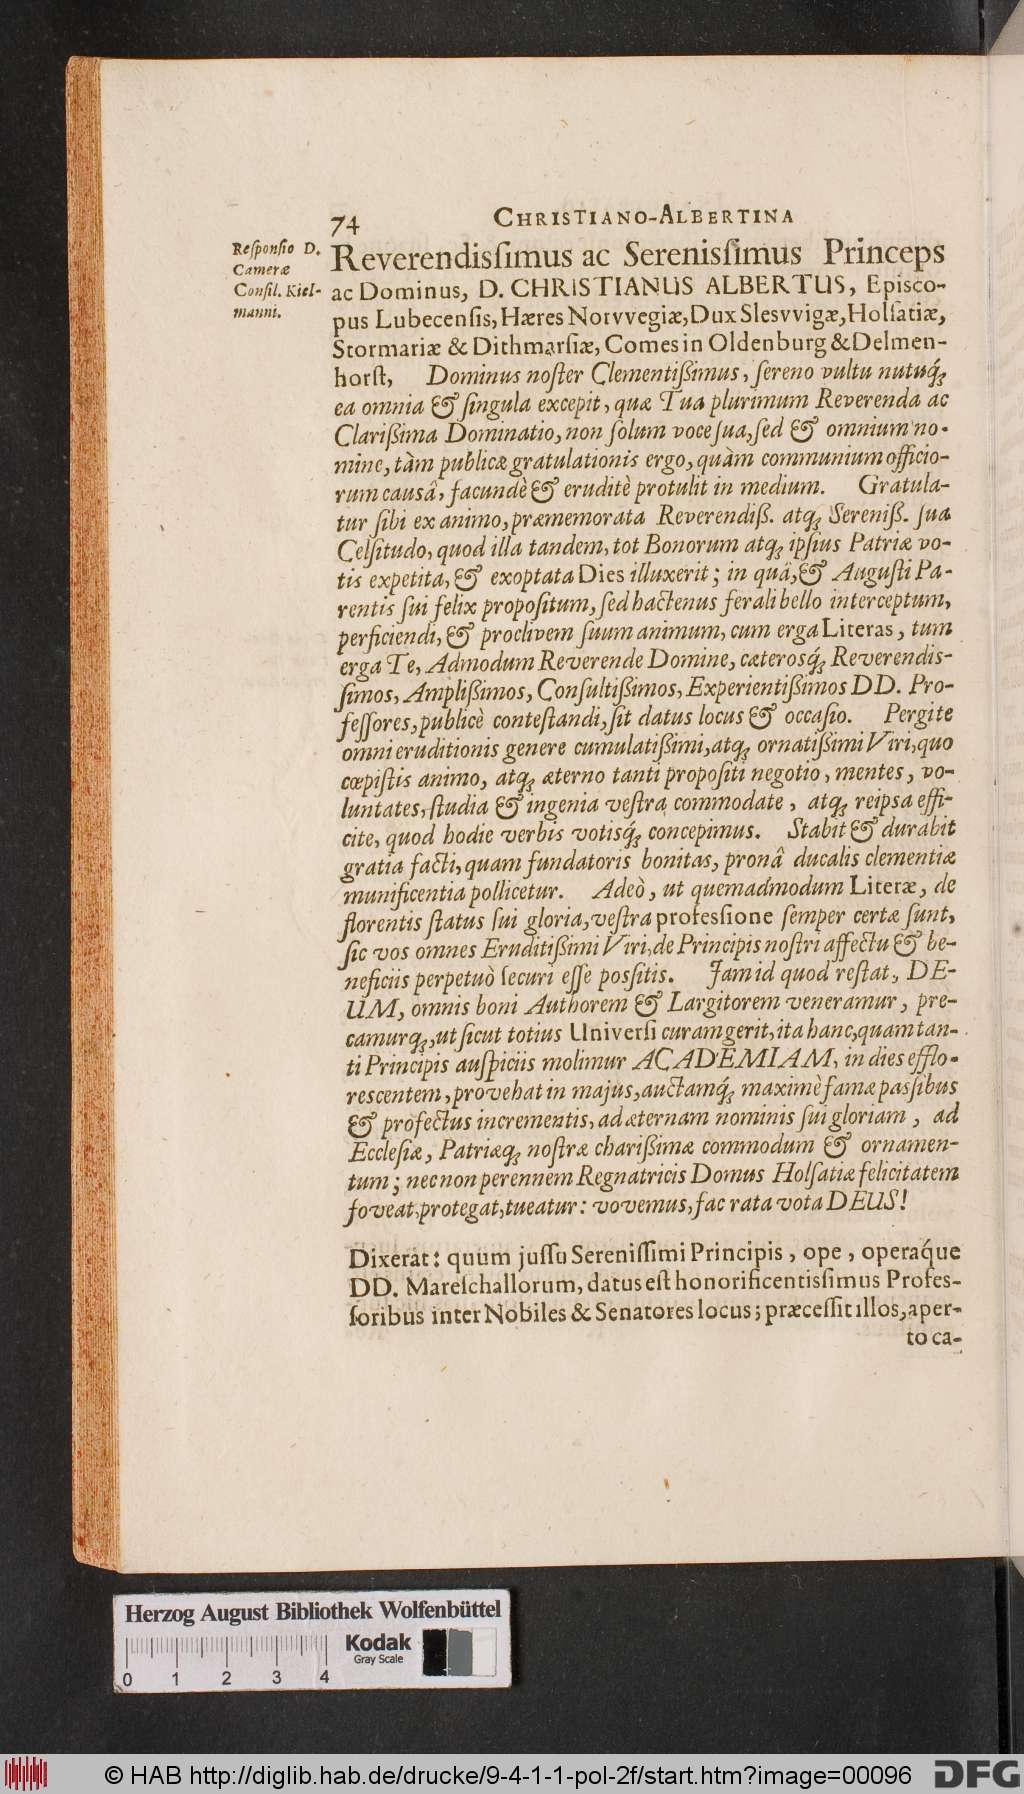 74 CHRISTIANO-ALBERTINA
Reſponſio D.
Cameræ
Conſil. Kiel-
manni.
Reverendisſimus ac Serenisſimus Princeps
ac Dominus, D. CHRISTIANUS ALBERTUS, Episco-
pus Lubecenſis, Hæres Norvvegiæ, Dux Slesvvigæ, Holſatiæ,
Stormariæ & Dithmarſiæ, Comes in Oldenburg & Delmen-
horſt, Dominus noſter Clementißimus, ſereno vultu nutuq́;
ea omnia & ſingula excepit, quæ Tua plurimum Reverenda ac
Clarißima Dominatio, non ſolum voce ſua, ſed & omnium no-
mine, tàm publicæ gratulationis ergo, quàm communium officio-
rum causâ, facundè & eruditè protulit in medium. Gratula-
tur ſibi ex animo, præmemorata Reverendiß. atq; Sereniß. ſua
Celſitudo, quod illa tandem, tot Bonorum atq; ipſius Patriæ vo-
tis expetita, & exoptata Dies illuxerit; in quâ, & Auguſti Pa-
rentis ſui felix propoſitum, ſed hactenus ferali bello interceptum,
perficiendi, & proclivem ſuum animum, cum erga Literas, tum
erga Te, Admodum Reverende Domine, cæterosq́; Reverendis-
ſimos, Amplißimos, Conſultißimos, Experientißimos DD. Pro-
feſſores, publicè conteſtandi, ſit datus locus & occaſio. Pergite
omni eruditionis genere cumulatißimi, atq; ornatißimi Viri, quo
cœpiſtis animo, atq; æterno tanti propoſiti negotio, mentes, vo-
luntates, ſtudia & ingenia veſtra commodate, atq; reipsa effi-
cite, quod hodie verbis votisq́; concepimus. Stabit & durabit
gratia facti, quam fundatoris bonitas, pronâ ducalis clementiæ
munificentia pollicetur. Adeò, ut quemadmodum Literæ, de
florentis ſtatus ſui gloria, veſtra professione ſemper certæ ſunt,
ſic vos omnes Eruditißimi Viri, de Principis noſtri affectu & be-
neficiis perpetuò ſecuri eſſe posſitis. Jam id quod reſtat, DE-
UM, omnis boni Authorem & Largitorem veneramur, pre-
camurq;, ut ſicut totius Univerſi curam gerit, ita hanc, quam tan-
ti Principis auſpiciis molimur ACADEMIAM, in dies efflo-
rescentem, provehat in majus, auctamq́; maximè famæ pasſibus
& profectus incrementis, ad æternam nominis ſui gloriam, ad
Eccleſiæ, Patriæq; noſtræ charißimæ commodum & ornamen-
tum; nec non perennem Regnatricis Domus Holſatiæ felicitatem
foveat, protegat, tueatur: vovemus, fac rata vota DEUS!
Dixerat: quum juſſu Sereniſſimi Principis, ope, operáque
DD. Mareſchallorum, datus eſt honorificentisſimus Profes-
ſoribus inter Nobiles & Senatores locus; præceſſit illos, aper-
to ca-
Herzog August Bibliothek Wolfenbüttel
Kodak
Gray Scale
0 1 2 3 4
© HAB http://diglib.hab.de/drucke/9-4-1-1-pol-2f/start.htm?image=00096
DFG